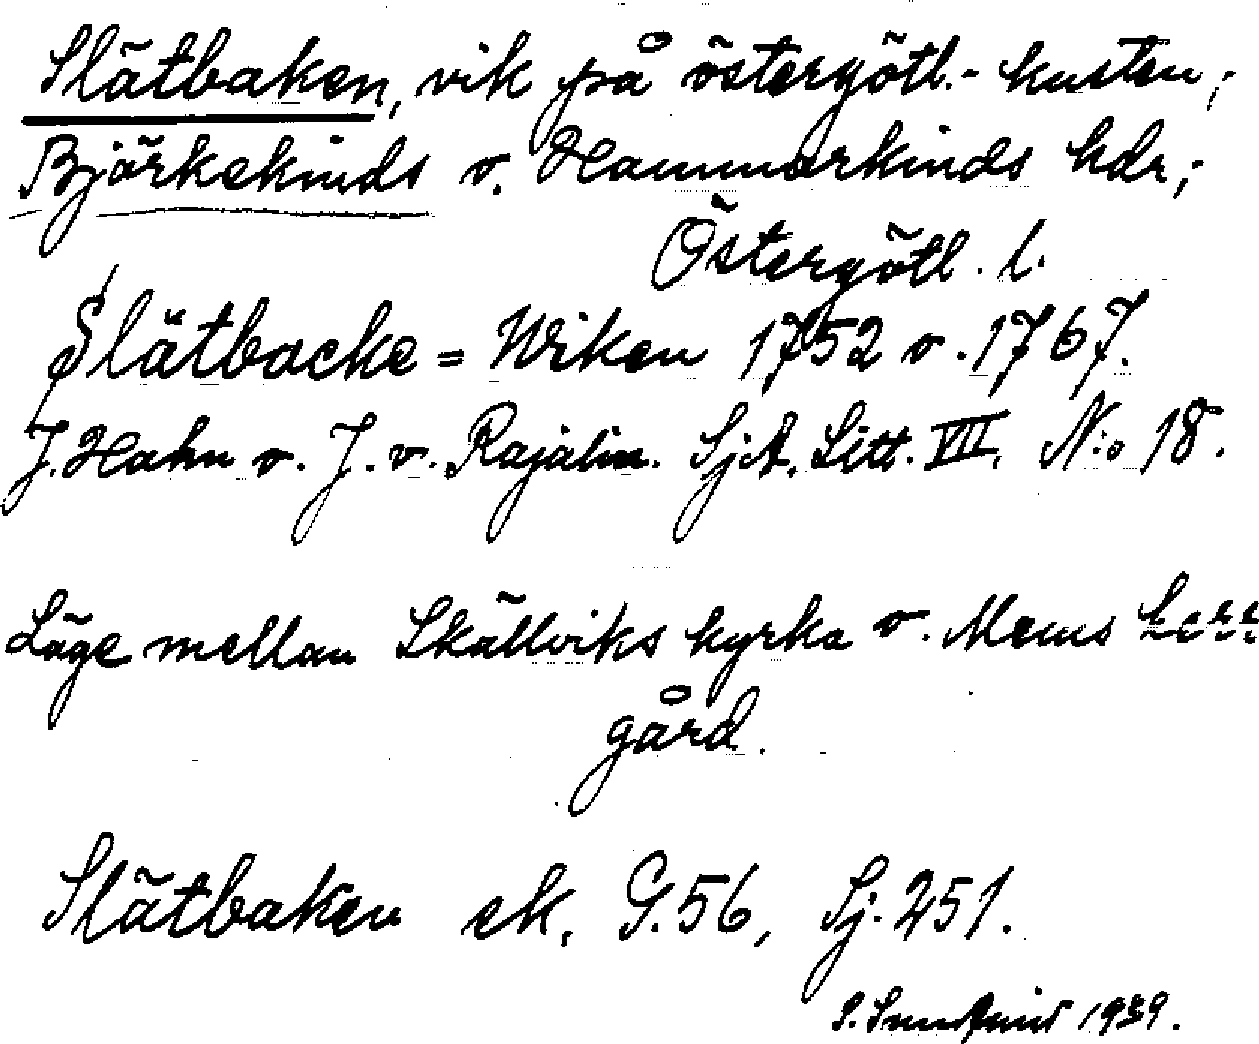 Slätbaken, vik på östergötl.- kusten;
Björkekinds o. Hammarkinds hdr;
Östergötl. l.
Slätbacke = Wiken 1752 o. 1767.
J. Hahn o. J. v. Rajalin. SjA. Litt. VII. N:o 18.
Läge mellan Skällviks kyrka o. Mems herr
gård.
Slätbaken ek. G. 56, Sj. 251.
1939.